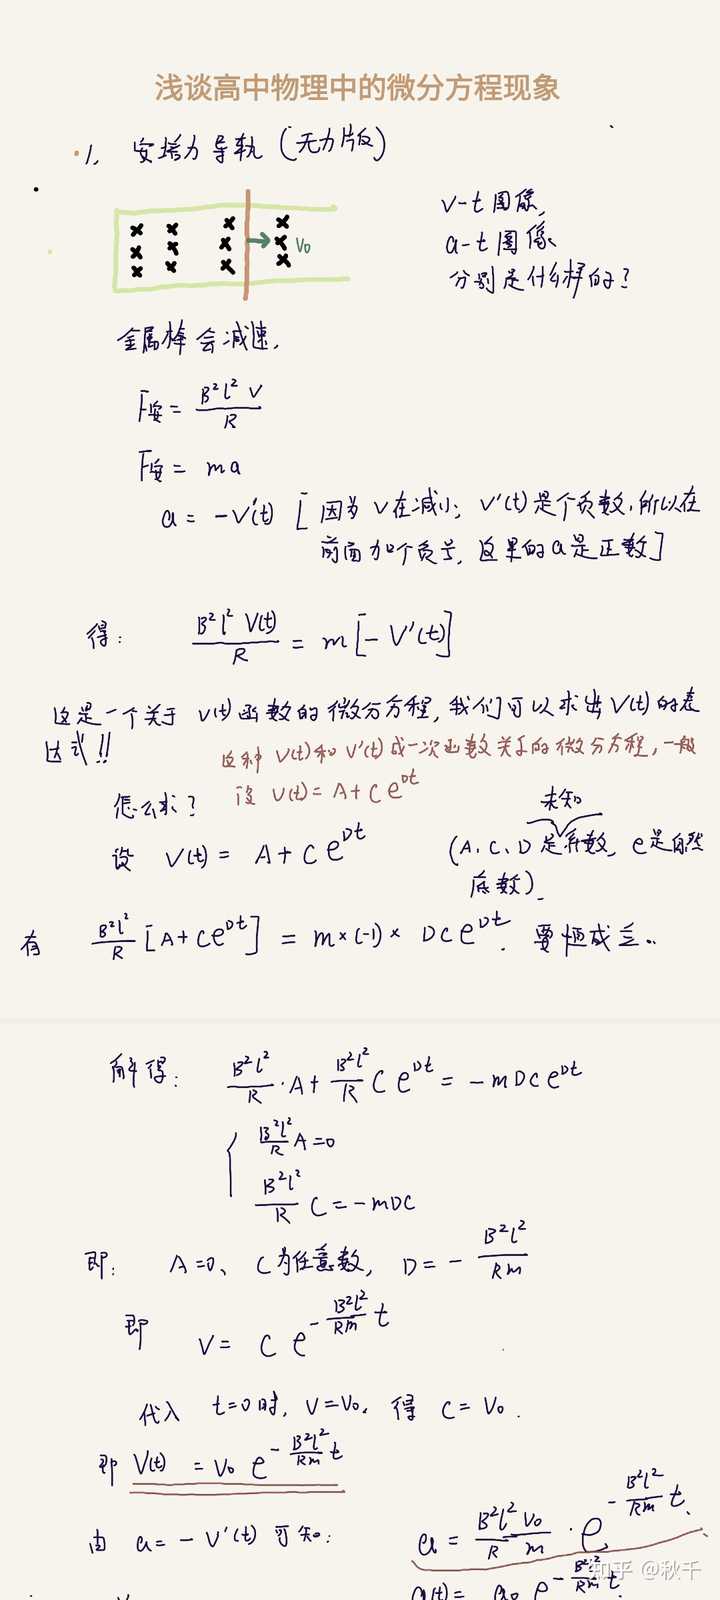 浅谈高中物理中的微分方程现象
1、安培力导轨(无力版)
V0
v-t图像,
a-t图像
分别是什么样的?
金属棒会减速,
F安 = B²l²v/R
F安 = ma
a = -v'(t) [因为v在减小; v'(t)是个负数,所以在
前面加个负号,这里的a是正数]
得: B²l²V(t)/R = m[-V'(t)]
这是一个关于v(t)函数的微分方程,我们可以求出V(t)的表
达式!!
这种V(t)和V'(t)成一次函数关系的微分方程,一般
设V(t)=A+Ce^Dt
怎么求?
设 V(t) = A+Ce^Dt
未知
(A、C、D是系数, e是自然
底数).
有 B²l²/R [A+Ce^Dt] = m×(-1)× DCe^Dt. 要恒成立..
解得: B²l²/R·A+B²l²/R Ce^Dt = -mDCe^Dt
{ B²l²/R A=0
B²l²/R C=-mDC
即: A=0、C为任意数, D=-B²l²/Rm
即 V= Ce^(-B²l²/Rm t)
代入 t=0时, V=V0, 得 C=V0.
即 V(t) = V0 e^(-B²l²/Rm t)
由 a=-V'(t) 可知:
a = B²l²V0/Rm · e^(-B²l²/Rm t)
知乎 @秋千
a(t)= a0 e^(-B²l²/Rm t)